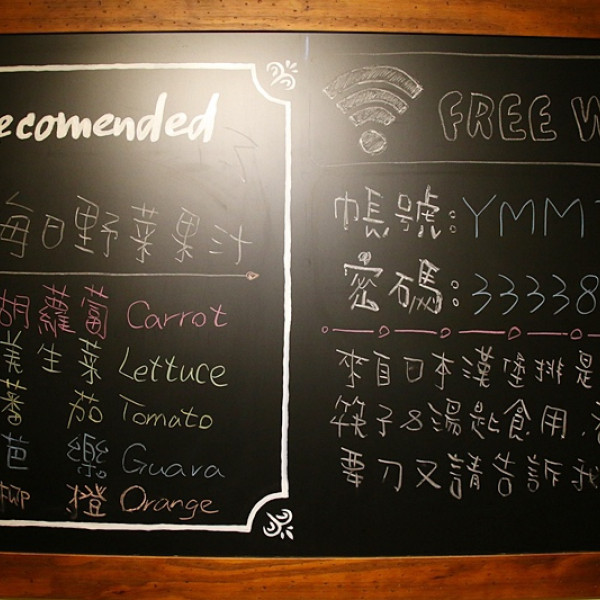 ecomended
每日野菜果汁
胡蘿蔔 Carrot
美生菜 Lettuce
蕃茄 Tomato
芭樂 Guava
柳橙 Orange
FREE W
帳號:YMMT
密碼:33338
來自日本漢堡排是
筷子&湯匙食用,
要刀叉請告訴我